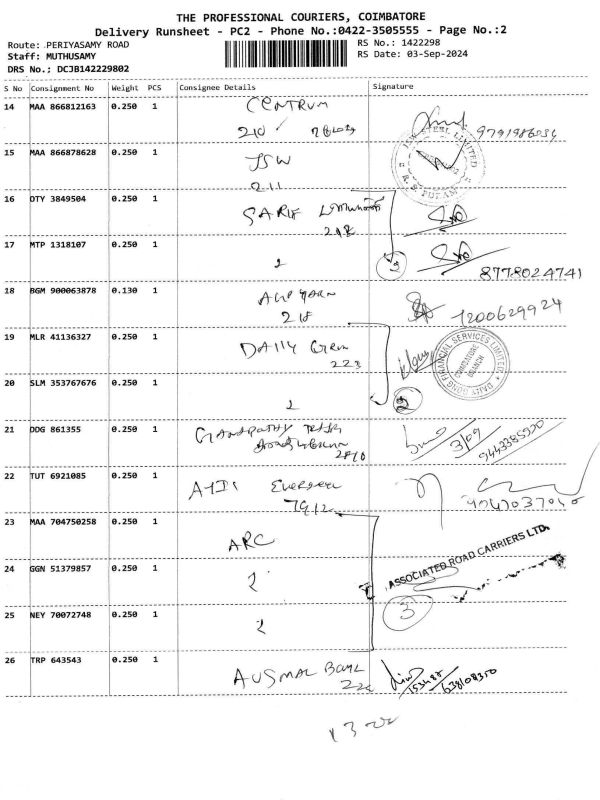 THE PROFESSIONAL COURIERS, COIMBATORE
Delivery Runsheet - PC2 - Phone No.:0422-3505555 - Page No.:2
Route: PERIYASAMY ROAD
RS No.: 1422298
Staff: MUTHUSAMY
RS Date: 03-Sep-2024
DRS No.; DCJB142229802
S No Consignment No Weight PCS Consignee Details Signature
14 MAA 866812163 0.250 1 CENTRUM
210
15 MAA 866878628 0.250 1 JSW
211
JSW STEEL LIMITED
R. S. PURAM
16 OTY 3849504 0.250 1 SARIF
218
17 MTP 1318107 0.250 1 2
2
8778024741
18 BGM 900063878 0.130 1
218
1200629924
19 MLR 41136327 0.250 1
223
FINANCIAL SERVICES LIMITED
COIMBATORE
BRANCH
20 SLM 353767676 0.250 1 2
2
21 DDG 861355 0.250 1
3/09
9443385520
22 TUT 6921085 0.250 1
7912
23 MAA 704750258 0.250 1 ARC
24 GGN 51379857 0.250 1 2
ASSOCIATED ROAD CARRIERS LTD.
3
25 NEY 70072748 0.250 1 2
26 TRP 643543 0.250 1